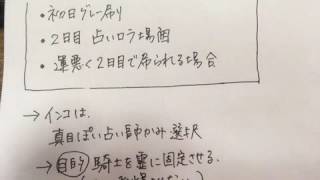 ・初日グレー吊り
・2日目 占いロラ場面
・運悪く2日目で吊られる場合
→インコは、
真目ぽい占い師かみ選択
→目的 騎士を霊に固定させる。